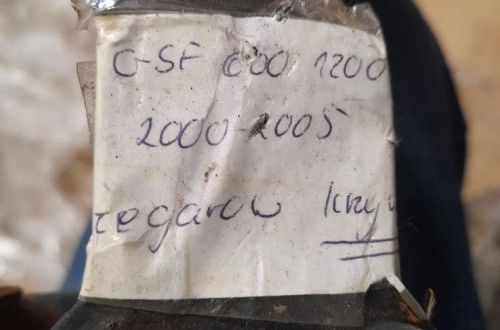 G-SF 600 1200
2000-2005
zegarów krzy